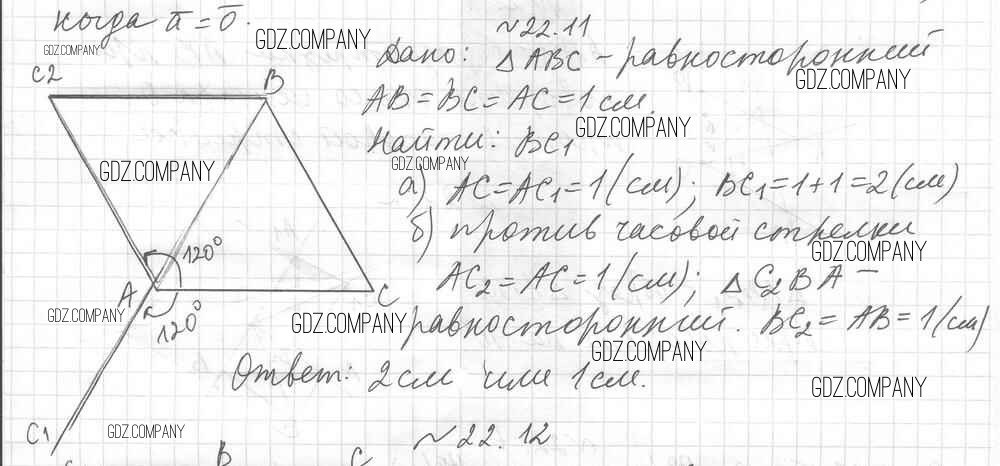 когда a̅ = 0̅.
№22.11
GDZ.COMPANY
GDZ.COMPANY
Дано: △ABC – равносторонний
GDZ.COMPANY
C2
B
AB = BC = AC = 1 см.
GDZ.COMPANY
Найти: BC1
GDZ.COMPANY
GDZ.COMPANY
а) AC = AC1 = 1 (см); BC1 = 1+1 = 2 (см)
б) против часовой стрелки
120°
GDZ.COMPANY
AC2 = AC = 1 (см); △C2BA –
A
C
GDZ.COMPANY
120°
GDZ.COMPANY
равносторонний. BC2 = AB = 1 (см)
GDZ.COMPANY
Ответ: 2 см или 1 см.
GDZ.COMPANY
C1
GDZ.COMPANY
№22.12
B
C